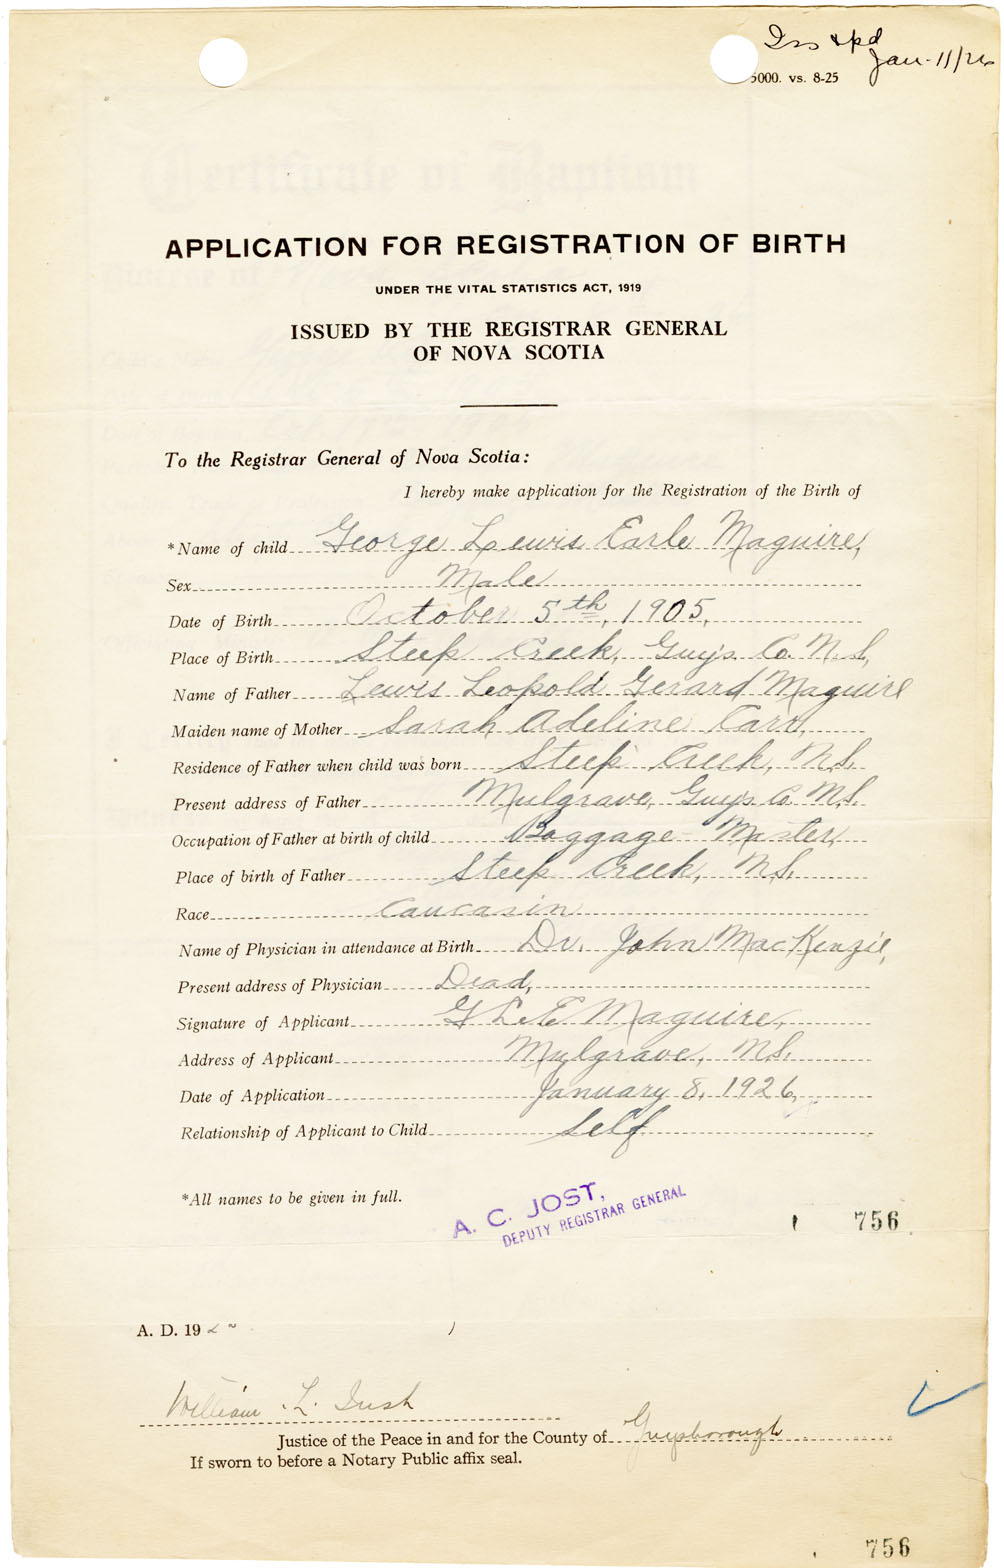 Iss & pd
Jan-11/26
5000. vs. 8-25
APPLICATION FOR REGISTRATION OF BIRTH
UNDER THE VITAL STATISTICS ACT, 1919
ISSUED BY THE REGISTRAR GENERAL
OF NOVA SCOTIA
To the Registrar General of Nova Scotia:
I hereby make application for the Registration of the Birth of
*Name of child George Lewis Earle Maguire,
Sex Male
Date of Birth October 5th, 1905,
Place of Birth Steep Creek, Guy's Co. N.S,
Name of Father Lewis Leopold Gerard Maguire
Maiden name of Mother Sarah Adeline Carr,
Residence of Father when child was born Steep Creek, N.S.
Present address of Father Mulgrave, Guy's Co. N.S.
Occupation of Father at birth of child Baggage-Master,
Place of birth of Father Steep Creek, N.S.
Race Caucasin
Name of Physician in attendance at Birth Dr. John MacKenzie,
Present address of Physician Dead,
Signature of Applicant G L E Maguire,
Address of Applicant Mulgrave, N.S.
Date of Application January 8, 1926,
Relationship of Applicant to Child Self
*All names to be given in full.
A. C. JOST,
DEPUTY REGISTRAR GENERAL
756
A. D. 19
William L.
Justice of the Peace in and for the County of Guysborough
If sworn to before a Notary Public affix seal.
756